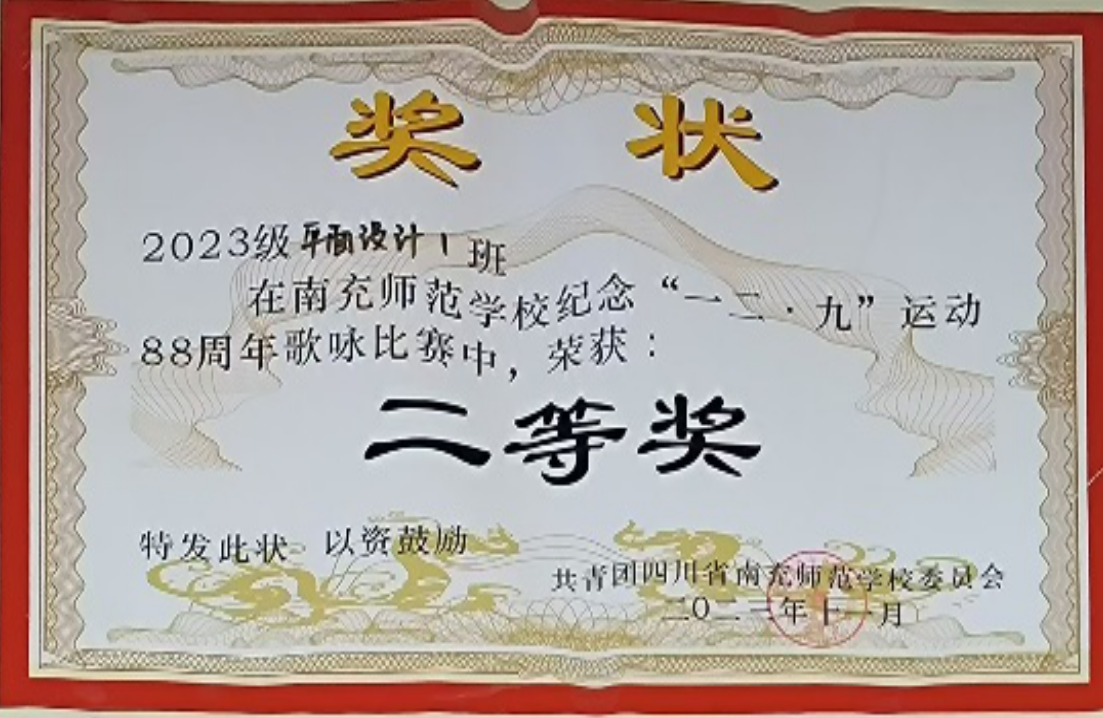 奖 状
2023级平面设计1班
在南充师范学校纪念“一二·九”运动
88周年歌咏比赛中，荣获：
二等奖
特发此状 以资鼓励
共青团四川省南充师范学校委员会
二〇二三年十一月